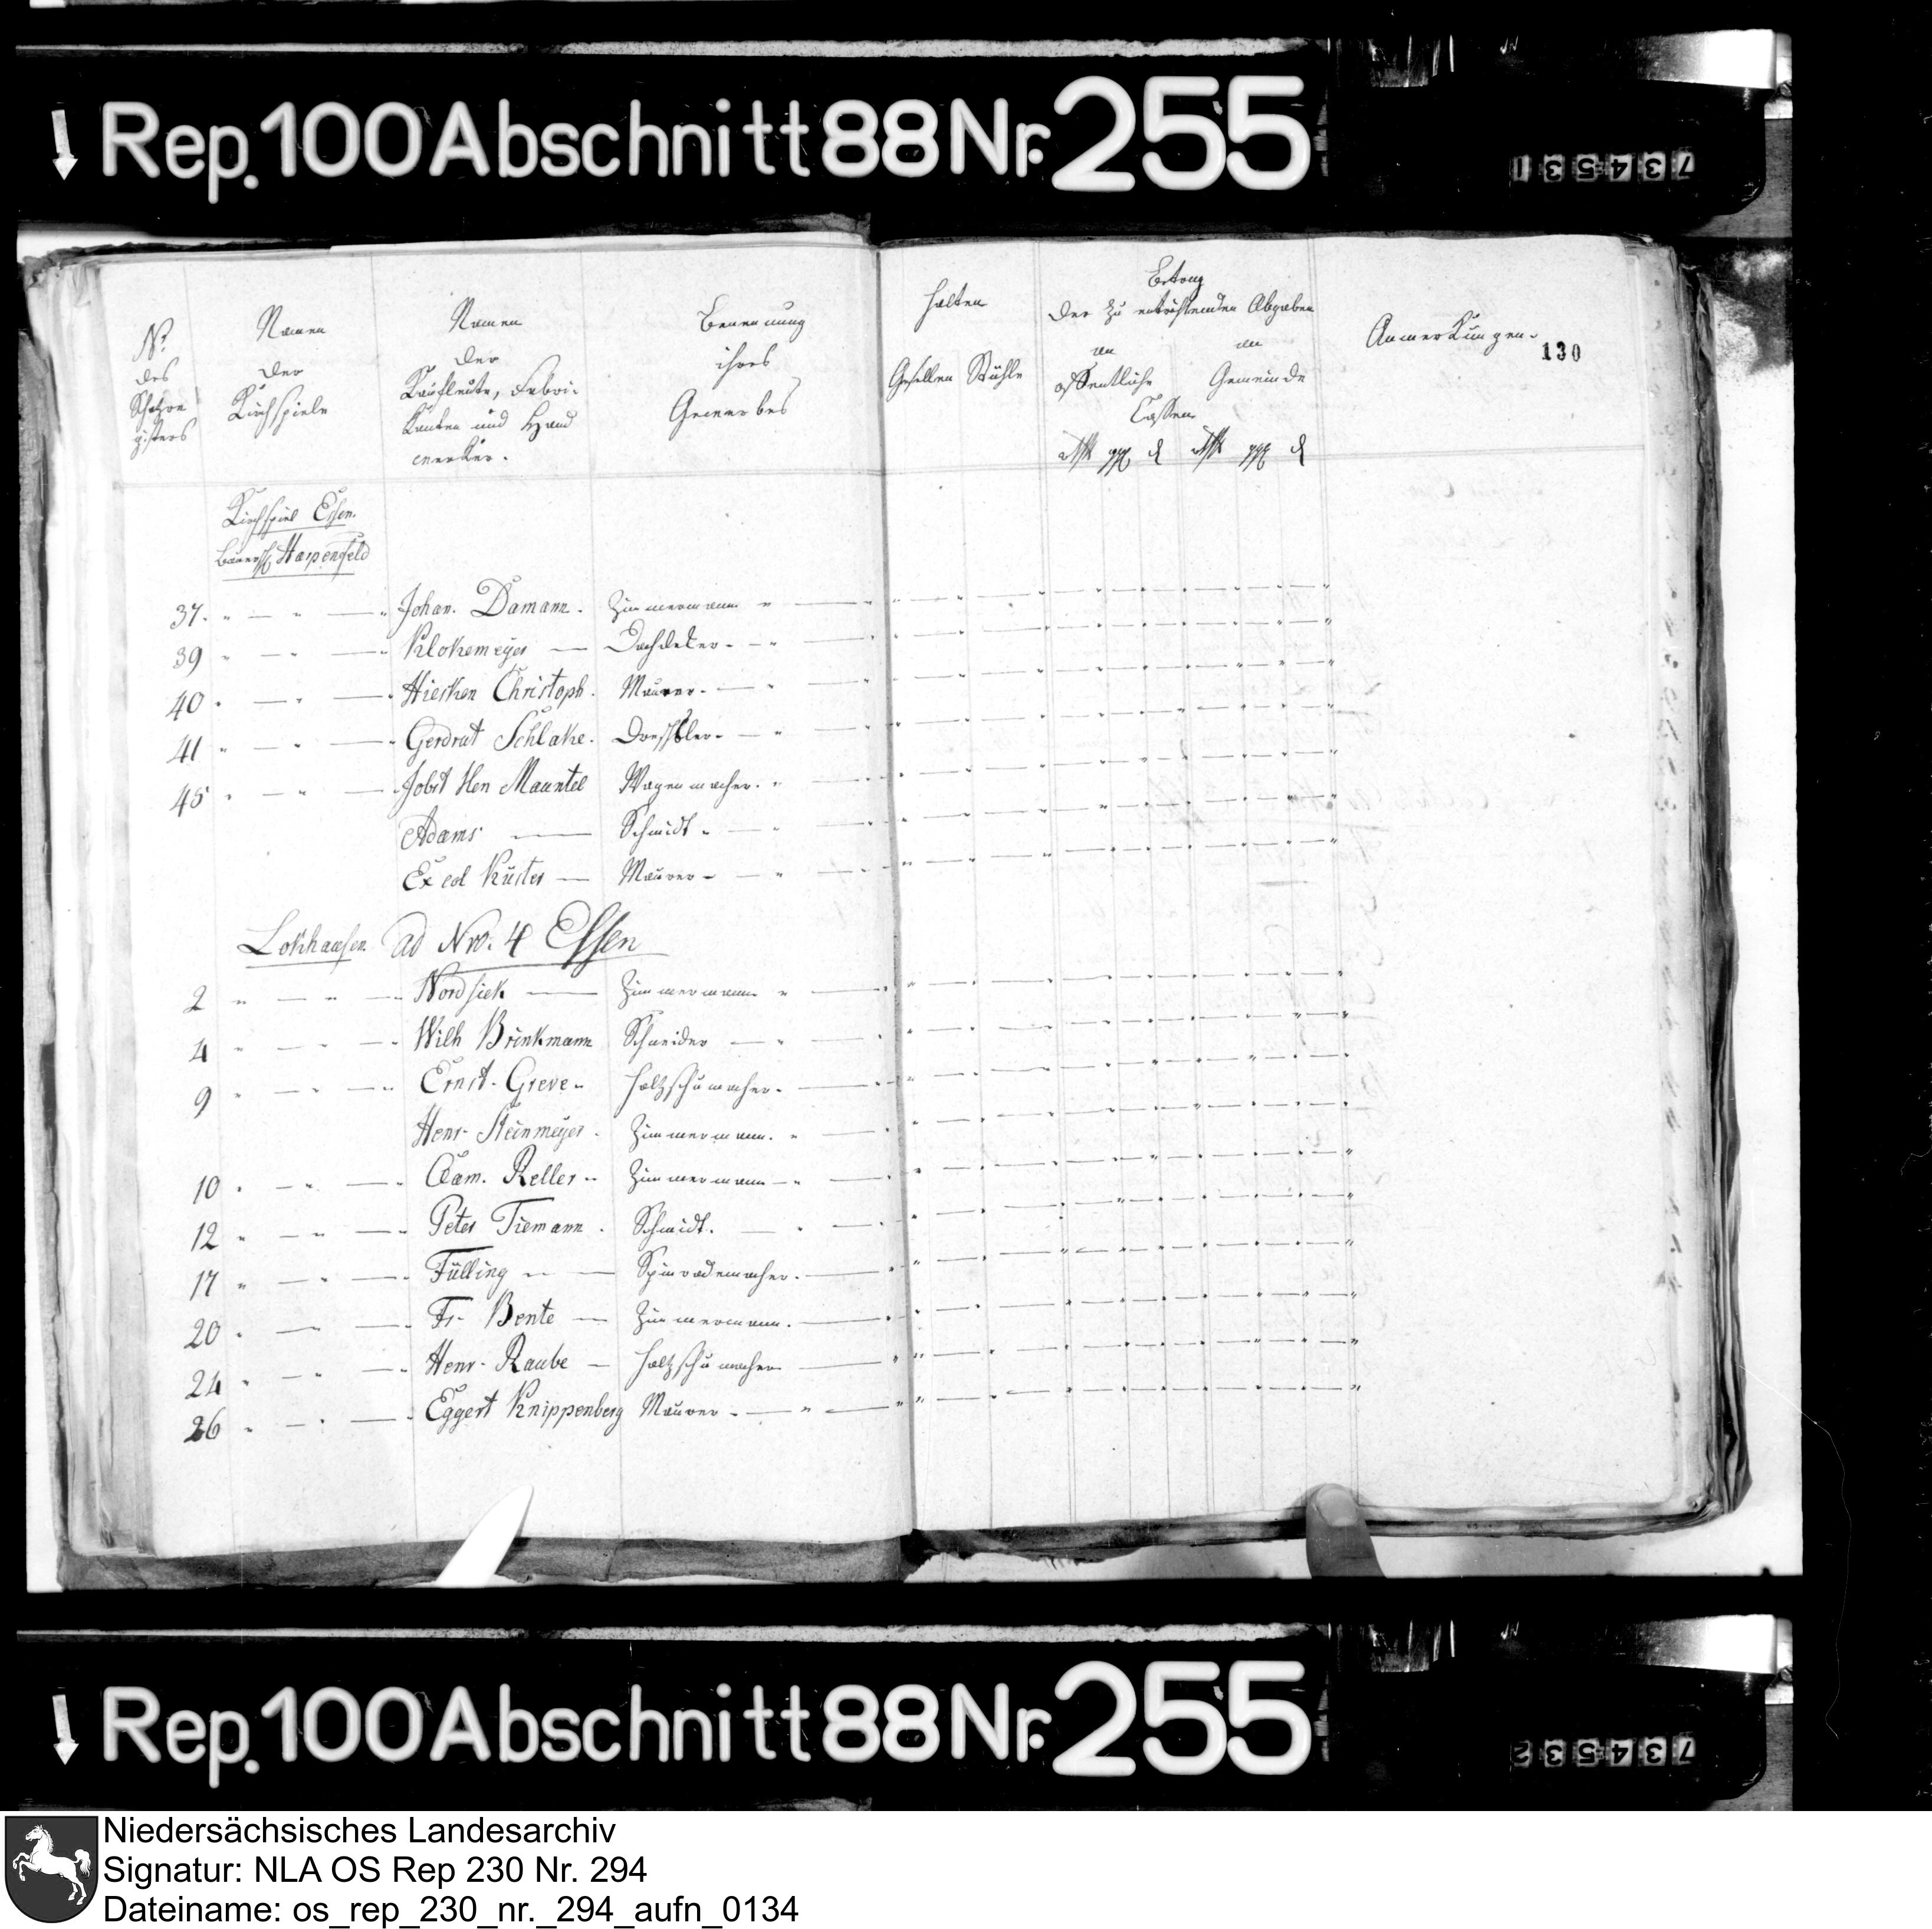 Rep. 100 Abschnitt 88 Nr. 255
734531
No. des Schatzregisters
Namen der Kirchspiele
Namen der Kaufleute, Fabrikanten und Handwerker.
Benennung ihres Gewerbes
halten
Gesellen Stühle
Betrag
der zu entrichtenden Abgaben
an öffentliche
an Gemeinde
Cassen
Anmerkungen.
130
Kirchspiel Essen.
Bauersch. Harpenfeld
37. Johan. Damann. Zimmermann
39 Klokemeyer Dachdeker
40 Hierken Christoph. Maurer
41 Gerdrut Schlake. Dressler
45 Jobst Hen Mauntel Wagenmacher.
Adams Schmidt
Ex col Küster Maurer
Lokhausen ad Nro. 4 Essen
2 Nordsiek Zimmermann
4 Wilh Brinkmann Schneider
9 Ernst Greve Holtzschumacher
Henr. Steinmeyer. Zimmermann.
10 Adam. Reller Zimmermann
12 Peter Tiemann. Schmidt.
17 Fülling Spinrademacher.
20 Fr. Bente Zimmermann.
24 Henr. Raube Holtzschumacher
26 Eggert Knippenberg Maurer
Rep. 100 Abschnitt 88 Nr. 255
734532
Niedersächsisches Landesarchiv
Signatur: NLA OS Rep 230 Nr. 294
Dateiname: os_rep_230_nr._294_aufn_0134